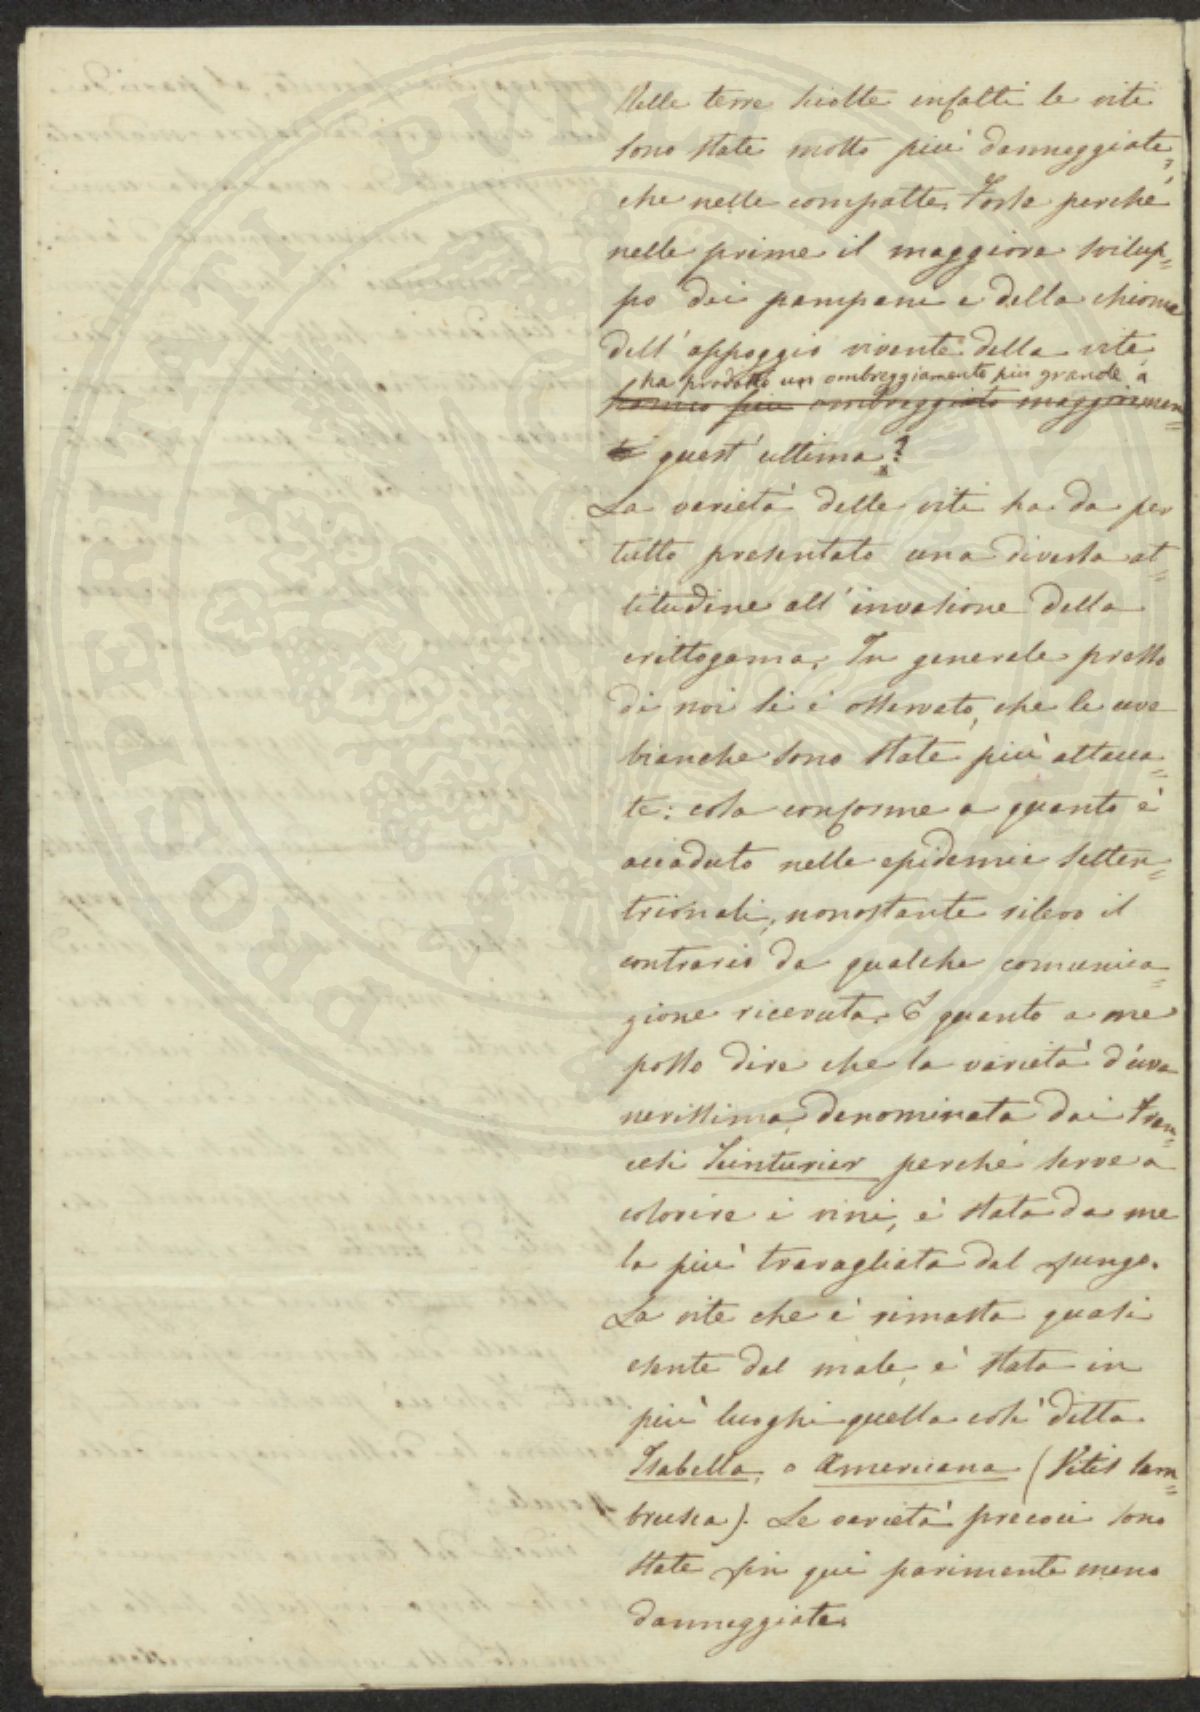 Nelle terre sciolte infatti le viti
sono state molto più danneggiate,
che nelle compatte. Forse perchè
nelle prime il maggiore svilup=
po dei pampani e della chioma
dell'appoggio vivente della vite
ha prodotto un ombreggiamento più grande a
più ombreggiato maggiormen=
te quest'ultima?
La varietà delle viti ha da per
tutto presentato una diversa at=
titudine all'invasione della
crittogama. In generale presso
di noi si è osservato, che le uve
bianche sono state più attacca=
te: cosa conforme a quanto è
accaduto nelle epidemie setten=
trionali, nonostante rilevo il
contrario da qualche comunica=
zione ricevuta. E quanto a me
posso dire che la varietà d'uva
nerissima, denominata dai Fran=
cesi Teinturier perchè serve a
colorire i vini, è stata da me
la più travagliata dal fungo.
La vite che è rimasta quasi
esente dal male, è stata in
più luoghi quella così detta
Isabella, o Americana (Vitis lam=
brusca). Le varietà precoci sono
state fin qui parimente meno
danneggiate.
PROSPERITATI PVBLICAE AVGENDAE